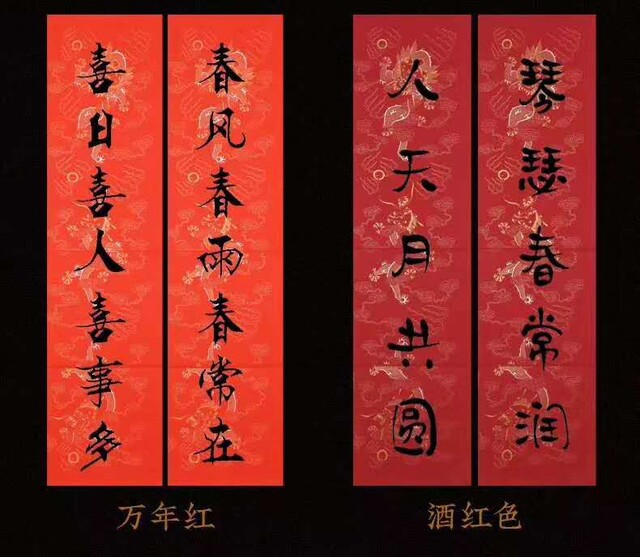 春风春雨春常在
喜日喜人喜事多
万年红
琴瑟春常润
人天月共圆
酒红色